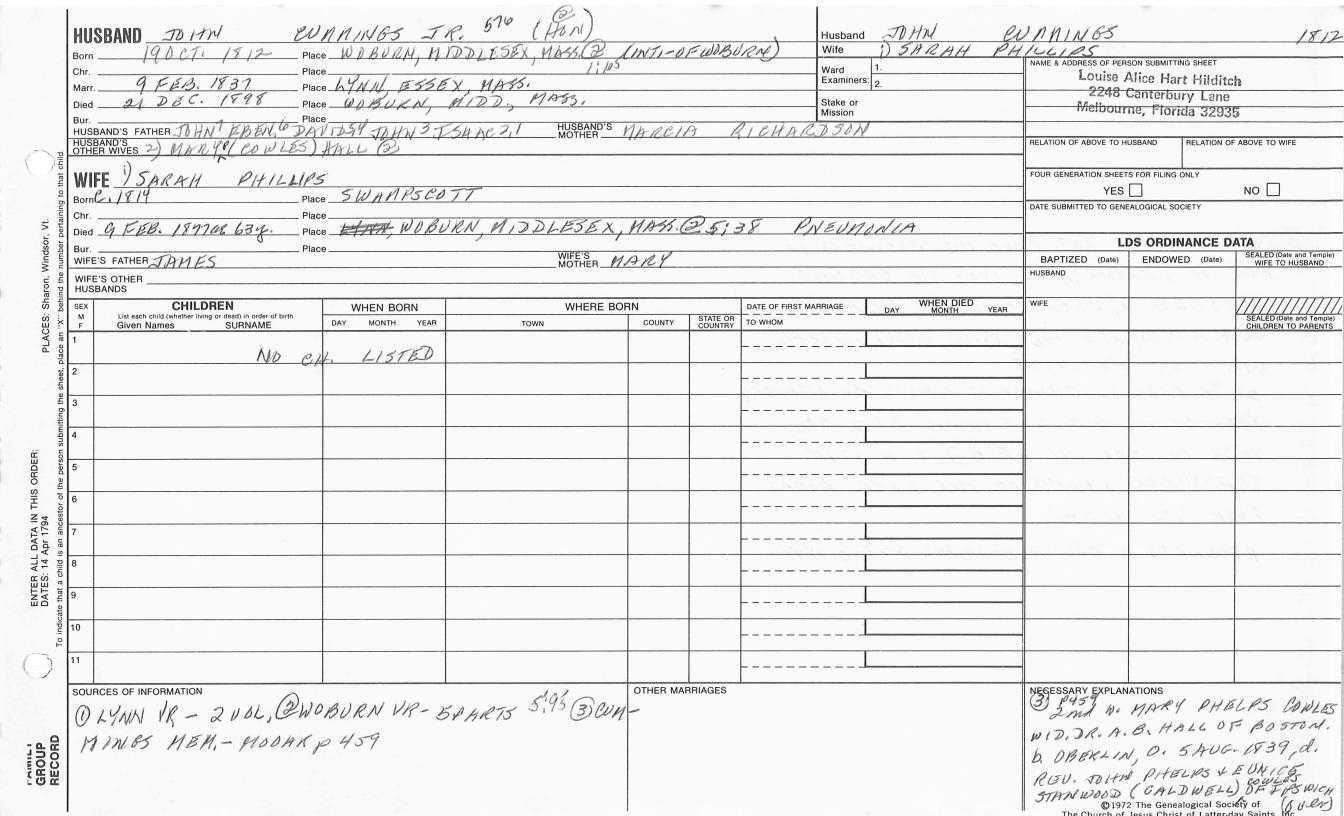 HUSBAND JOHN CUMMINGS JR. 576 (HON) ②
Born 19 OCT. 1812 Place WOBURN, MIDDLESEX, MASS. ② (INTI-OF WOBURN)
Chr. Place 1:105
Marr. 9 FEB. 1837 Place LYNN, ESSEX, MASS.
Died 21 DEC. 1898 Place WOBURN, MIDD., MASS.
Bur. Place
HUSBAND'S FATHER JOHN7 EBEN,6 DAVID54 JOHN3 ISHAC2,1 HUSBAND'S MOTHER MARCIA RICHARDSON
HUSBAND'S OTHER WIVES 2) MARY P (COWLES) HALL ②
WIFE 1) SARAH PHILLIPS
Born C. 1814 Place SWAMPSCOTT
Chr. Place
Died 9 FEB. 1877 ae 63y. Place WOBURN, MIDDLESEX, MASS. ② 5:38 PNEUMONIA
Bur. Place
WIFE'S FATHER JAMES WIFE'S MOTHER MARY
WIFE'S OTHER HUSBANDS
Husband JOHN CUMMINGS 1812
Wife 1) SARAH PHILLIPS
Ward Examiners: 1.
2.
Stake or Mission
NAME & ADDRESS OF PERSON SUBMITTING SHEET
Louise Alice Hart Hilditch
2248 Canterbury Lane
Melbourne, Florida 32935
RELATION OF ABOVE TO HUSBAND RELATION OF ABOVE TO WIFE
FOUR GENERATION SHEETS FOR FILING ONLY
YES NO
DATE SUBMITTED TO GENEALOGICAL SOCIETY
LDS ORDINANCE DATA
BAPTIZED (Date) ENDOWED (Date) SEALED (Date and Temple) WIFE TO HUSBAND
HUSBAND
WIFE
SEALED (Date and Temple) CHILDREN TO PARENTS
SEX M F
CHILDREN
List each child (whether living or dead) in order of birth
Given Names SURNAME
WHEN BORN
DAY MONTH YEAR
WHERE BORN
TOWN COUNTY STATE OR COUNTRY
DATE OF FIRST MARRIAGE
TO WHOM
WHEN DIED
DAY MONTH YEAR
1
NO CH. LISTED
2
3
4
5
6
7
8
9
10
11
SOURCES OF INFORMATION
① LYNN VR - 2 VOL, ② WOBURN VR - 5 PARTS 5:95 ③ CUM-
MINGS MEM. - MOOAR p 459
OTHER MARRIAGES
NECESSARY EXPLANATIONS
③ p459
2nd w. MARY PHELPS COWLES
WID. DR. A.B. HALL OF BOSTON.
b. OBERLIN, O. 5 AUG. 1839, d.
REV. JOHN PHELPS & EUNICE COWLES
STANWOOD (CALDWELL) OF IPSWICH
(OVER)
©1972 The Genealogical Society of
The Church of Jesus Christ of Latter-day Saints, Inc.
PLACES: Sharon, Windsor, Vt.
ENTER ALL DATA IN THIS ORDER:
DATES: 14 Apr 1794
To indicate that a child is an ancestor of the person submitting the sheet, place an "X" behind the number pertaining to that child
FAMILY GROUP RECORD